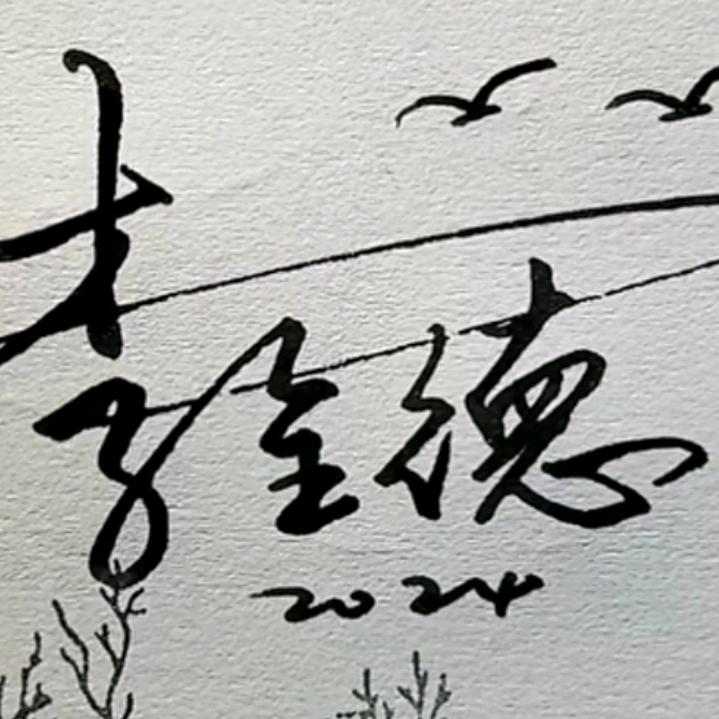 李全德
2024